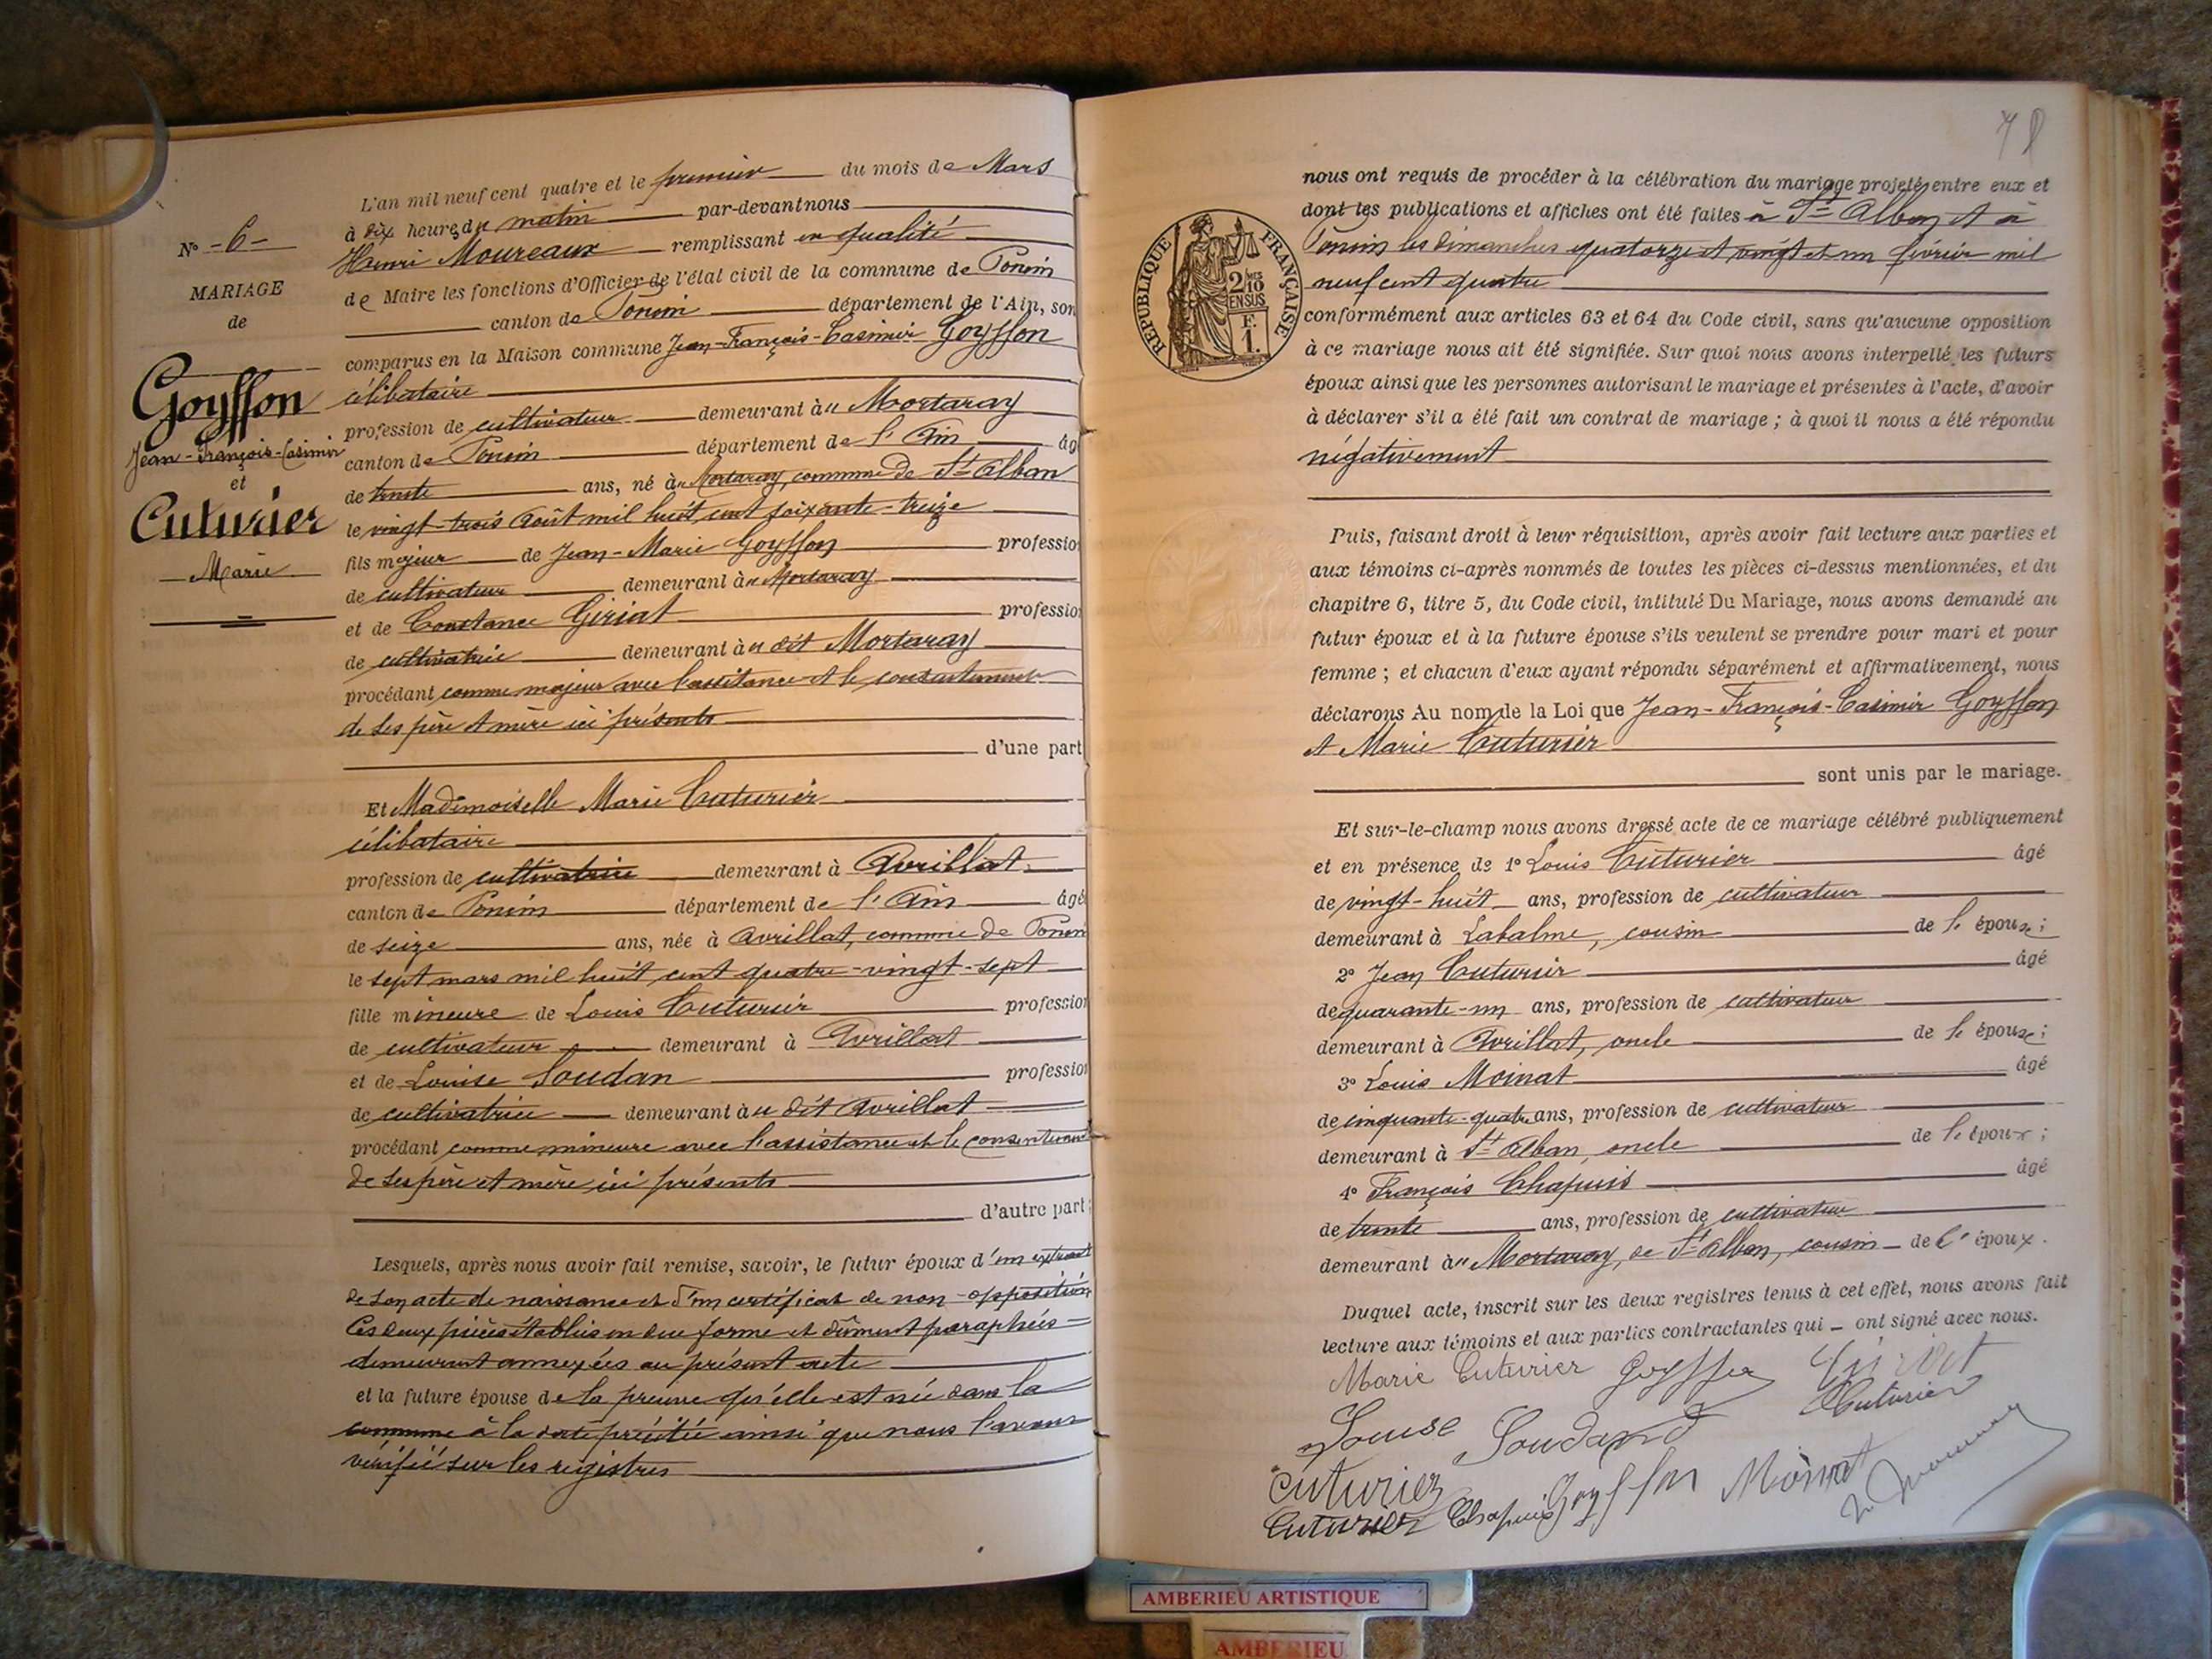 N° - 6 -
MARIAGE
de
Goyffon
Jean-François-Casimir
et
Cuturier
Marie
L'an mil neuf cent quatre et le premier du mois de Mars
à dix heures du matin par-devant nous
Henri Moureaux remplissant en qualité
de Maire les fonctions d'Officier de l'état civil de la commune de Poncin
canton de Poncin département de l'Ain, son
comparus en la Maison commune Jean-François-Casimir Goyffon
célibataire
profession de cultivateur demeurant à Mortaray
canton de Poncin département de l'Ain âg
de trente ans, né à Mortaray, commune de St Alban
le vingt-trois Août mil huit cent soixante-treize
fils majeur de Jean-Marie Goyffon profession
de cultivateur demeurant à Mortaray
et de Constance Giriat profession
de cultivatrice demeurant au dit Mortaray
procédant comme majeur avec l'assistance et le consentement
de ses père et mère ici présents
d'une part
Et Mademoiselle Marie Cuturier
célibataire
profession de cultivatrice demeurant à Avrillat
canton de Poncin département de l'Ain âgé
de seize ans, née à Avrillat, commune de Poncin
le sept mars mil huit cent quatre-vingt-sept
fille mineure de Louis Cuturier profession
de cultivateur demeurant à Avrillat
et de Louise Soudan profession
de cultivatrice demeurant au dit Avrillat
procédant comme mineure avec l'assistance et le consentement
de ses père et mère ici présents
d'autre part ;
Lesquels, après nous avoir fait remise, savoir, le futur époux d'un extrait
de son acte de naissance et d'un certificat de non-opposition
Ces deux pièces établies en due forme et dûment paraphées
demeurent annexées au présent acte
et la future épouse de la preuve qu'elle est née dans la
commune à la date précitée ainsi que nous l'avons
vérifié sur les registres
78
nous ont requis de procéder à la célébration du mariage projeté entre eux et
dont les publications et affiches ont été faites à St Alban et à
Poncin les dimanches quatorze et vingt et un février mil
neuf cent quatre
RÉPUBLIQUE FRANÇAISE
2/10
EN SUS
F.
1.
conformément aux articles 63 et 64 du Code civil, sans qu'aucune opposition
à ce mariage nous ait été signifiée. Sur quoi nous avons interpellé les futurs
époux ainsi que les personnes autorisant le mariage et présentes à l'acte, d'avoir
à déclarer s'il a été fait un contrat de mariage ; à quoi il nous a été répondu
négativement
Puis, faisant droit à leur réquisition, après avoir fait lecture aux parties et
aux témoins ci-après nommés de toutes les pièces ci-dessus mentionnées, et du
chapitre 6, titre 5, du Code civil, intitulé Du Mariage, nous avons demandé au
futur époux et à la future épouse s'ils veulent se prendre pour mari et pour
femme ; et chacun d'eux ayant répondu séparément et affirmativement, nous
déclarons Au nom de la Loi que Jean-François-Casimir Goyffon
et Marie Cuturier
sont unis par le mariage.
Et sur-le-champ nous avons dressé acte de ce mariage célébré publiquement
et en présence de 1° Louis Cuturier âgé
de vingt-huit ans, profession de cultivateur
demeurant à Labalme, cousin de l'épouse ;
2° Jean Cuturier âgé
de quarante-un ans, profession de cultivateur
demeurant à Avrillat, oncle de l'épouse ;
3° Louis Moinat âgé
de cinquante-quatre ans, profession de cultivateur
demeurant à St Alban, oncle de l'époux ;
4° François Chapuis âgé
de trente ans, profession de cultivateur
demeurant à Mortaray, de St Alban, cousin de l'époux.
Duquel acte, inscrit sur les deux registres tenus à cet effet, nous avons fait
lecture aux témoins et aux parties contractantes qui ont signé avec nous.
Marie Cuturier Goyffon
Cuturier
Louise Soudand
Cuturier
Cuturier Chapuis Goyffon Moinat
AMBERIEU ARTISTIQUE
AMBERIEU